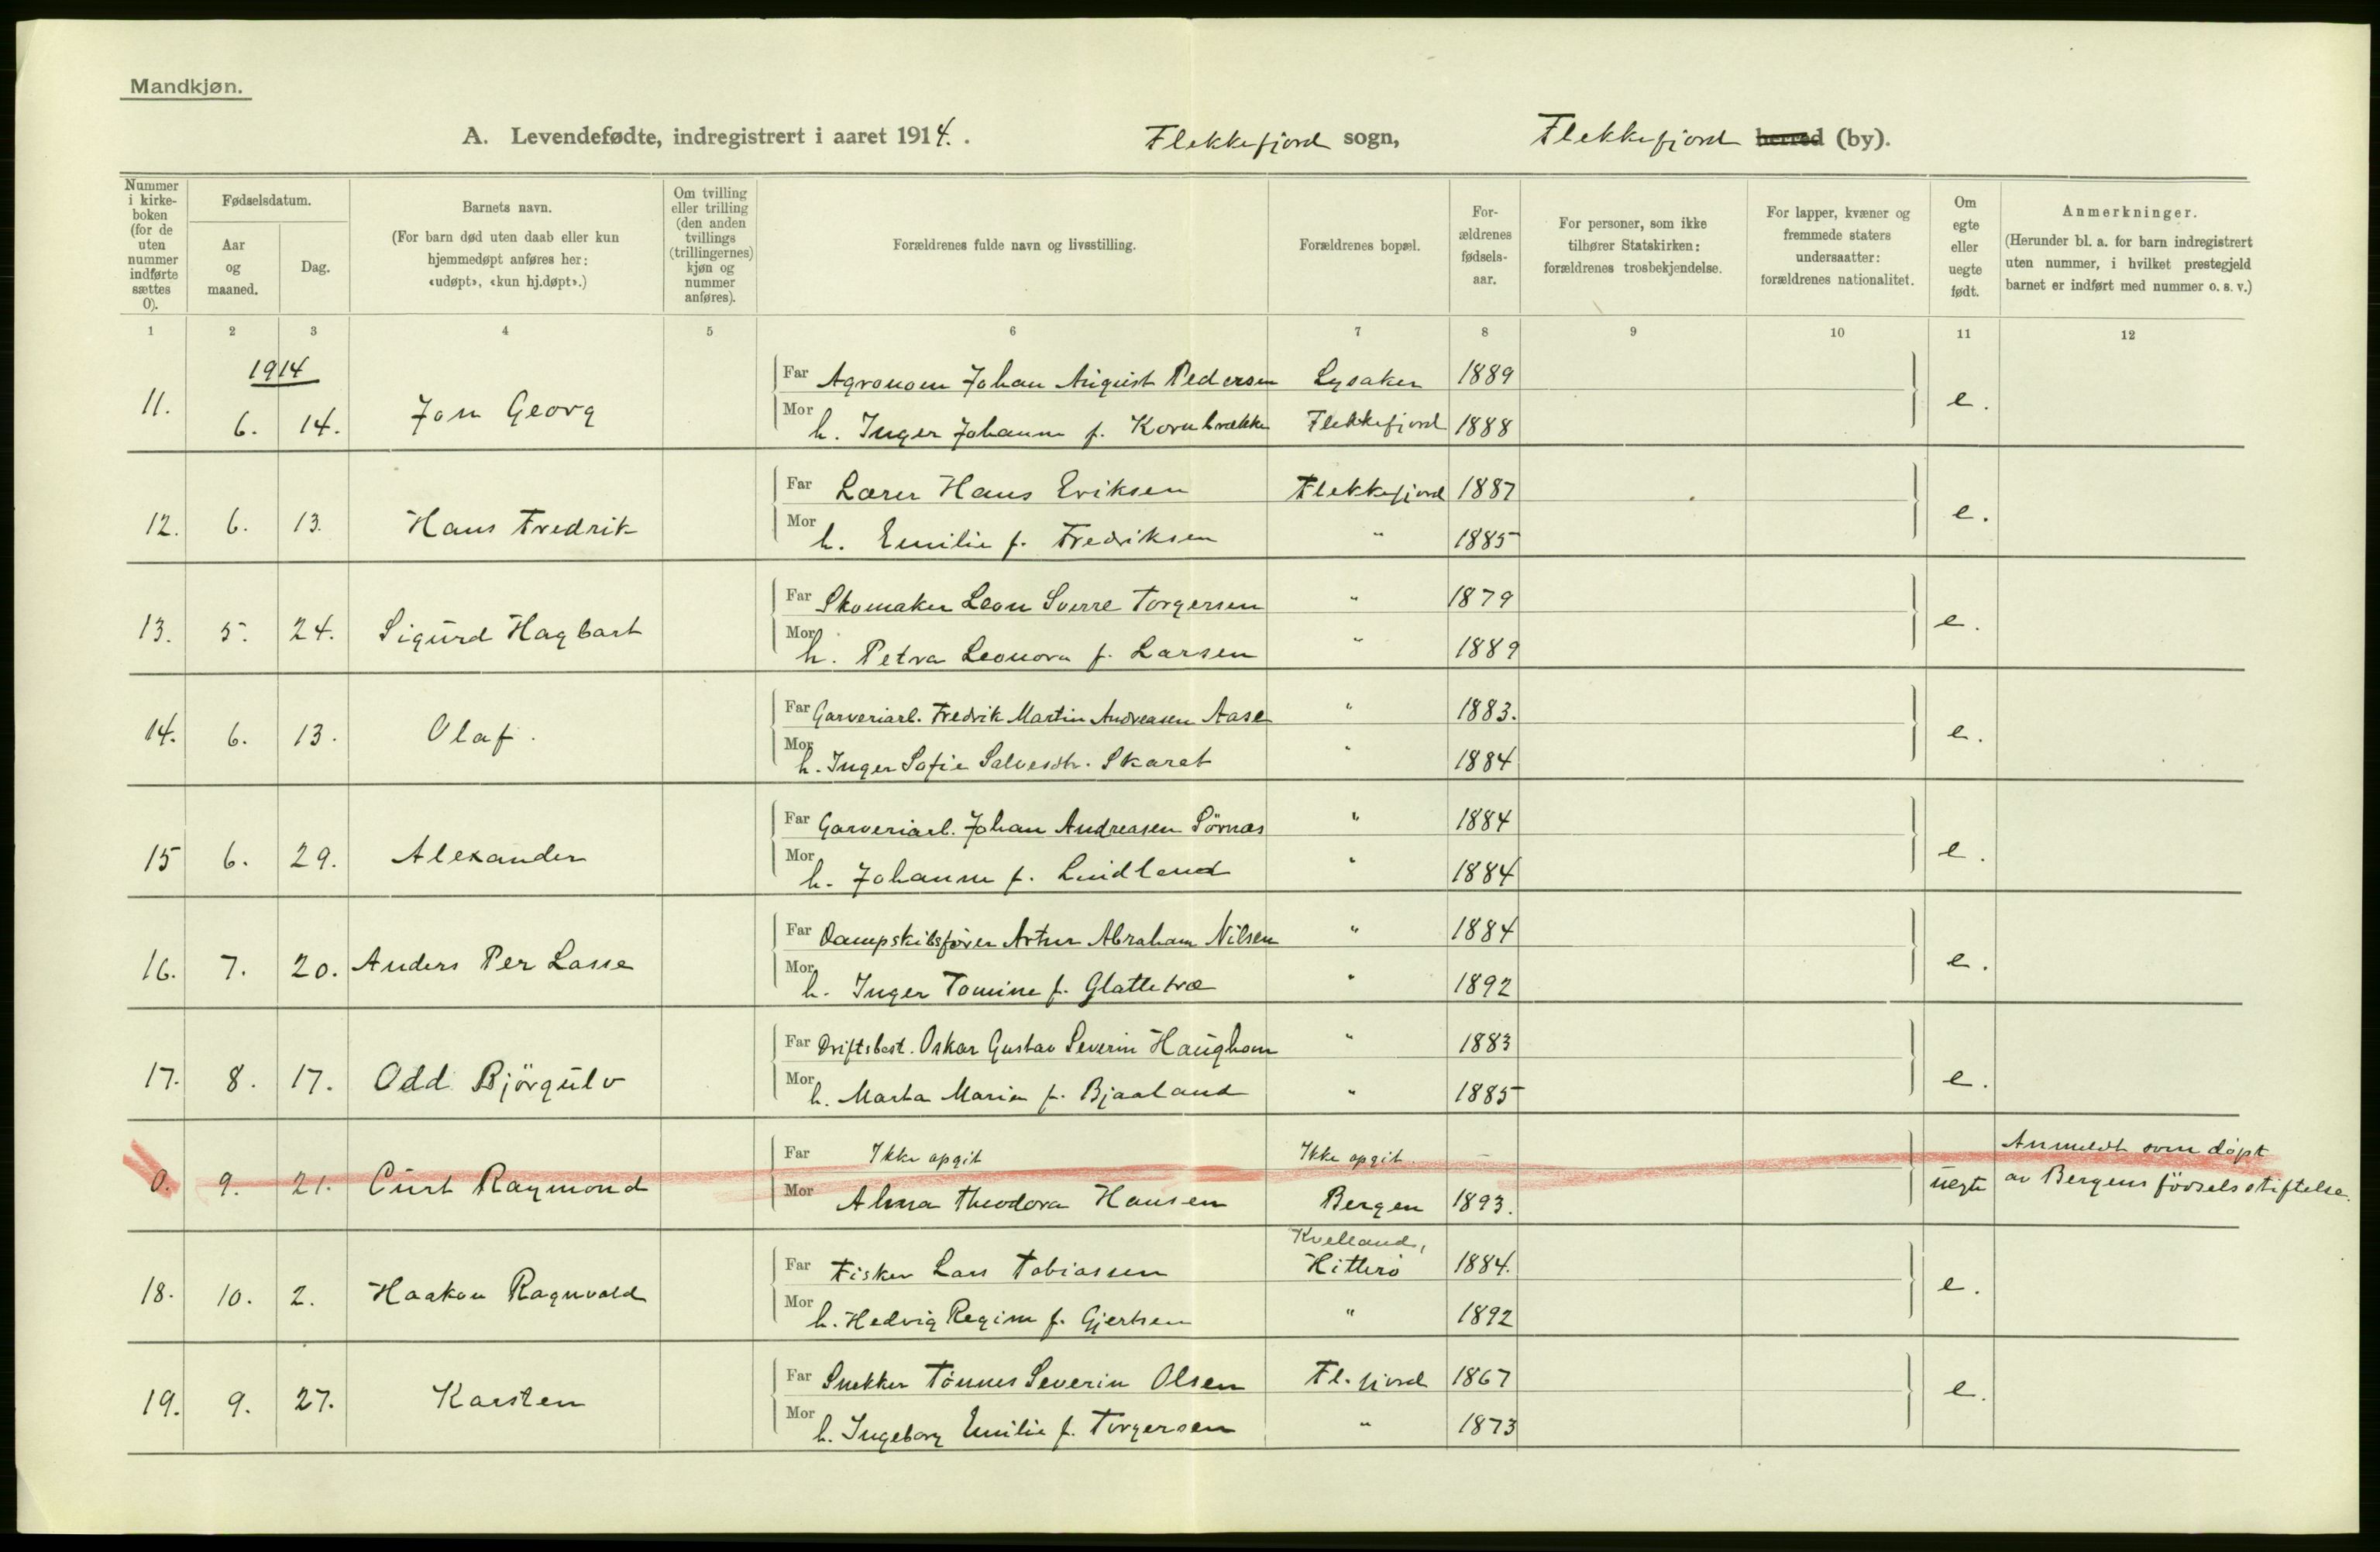 Mandkjøn.
A. Levendefødte, indregistrert i aaret 1914. . Flekkefjord sogn, Flekkefjord herred (by).
Nummer i kirke-boken (for de uten nummer indførte sættes 0).
Fødselsdatum.
Aar og maaned.
Dag.
Barnets navn.
(For barn død uten daab eller kun hjemmedøpt anføres her: «udøpt», «kun hj.døpt».)
Om tvilling eller trilling (den anden tvillings (trillingernes) kjøn og nummer anføres).
Forældrenes fulde navn og livsstilling.
Forældrenes bopæl.
For-ældrenes fødsels-aar.
For personer, som ikke tilhører Statskirken: forældrenes trosbekjendelse.
For lapper, kvæner og fremmede staters undersaatter: forældrenes nationalitet.
Om egte eller uegte født.
Anmerkninger.
(Herunder bl. a. for barn indregistrert uten nummer, i hvilket prestegjeld barnet er indført med nummer o. s. v.)
1 2 3 4 5 6 7 8 9 10 11 12
1914
Far Agronom Johan August Pedersen Lysaker 1889
11. 6. 14. Jon Georg e.
Mor h. Inger Johanne f. Kornbrække Flekkefjord 1888
Far Lærer Hans Eriksen Flekkefjord 1887
12. 6. 13. Hans Fredrik e.
Mor h. Emilie f. Fredriksen " 1885
Far Skomaker Leon Sverre Torgersen " 1879
13. 5. 24. Sigurd Hagbart e.
Mor h. Petra Leonora f. Larsen " 1889
Far Garveriarb. Fredrik Martin Andreasen Aase " 1883.
14. 6. 13. Olaf. e.
Mor h. Inger Sofie Salvesdtr. Skaret " 1884
Far Garveriarb. Johan Andreasen Sörnæs " 1884
15 6. 29. Alexander e.
Mor h. Johanne f. Lindland " 1884
Far Dampskibsfører Artur Abraham Nilsen " 1884
16. 7. 20. Anders Per Lasse e.
Mor h. Inger Tomine f. Glattetræ " 1892
Far Driftsbest. Oskar Gustav Severin Haughom " 1883
17. 8. 17. Odd Björgulv e.
Mor h. Marta Marie f. Bjaaland " 1885
Far Ikke opgit Ikke opgit. — Anmeldt som döpt
0. 9. 21. Curt Raymond uegte av Bergens födselsstiftelse.
Mor Alma Theodora Hansen Bergen 1893.
Kvelland,
Far Fisker Lars Tobiassen Hitterö 1884.
18. 10. 2. Haakon Ragnvald e.
Mor h. Hedvig Regine f. Gjertsen " 1892
Far Snekker Tönnes Severin Olsen Fl.fjord 1867
19. 9. 27. Karsten e.
Mor h. Ingeborg Emilie f. Torgersen " 1873